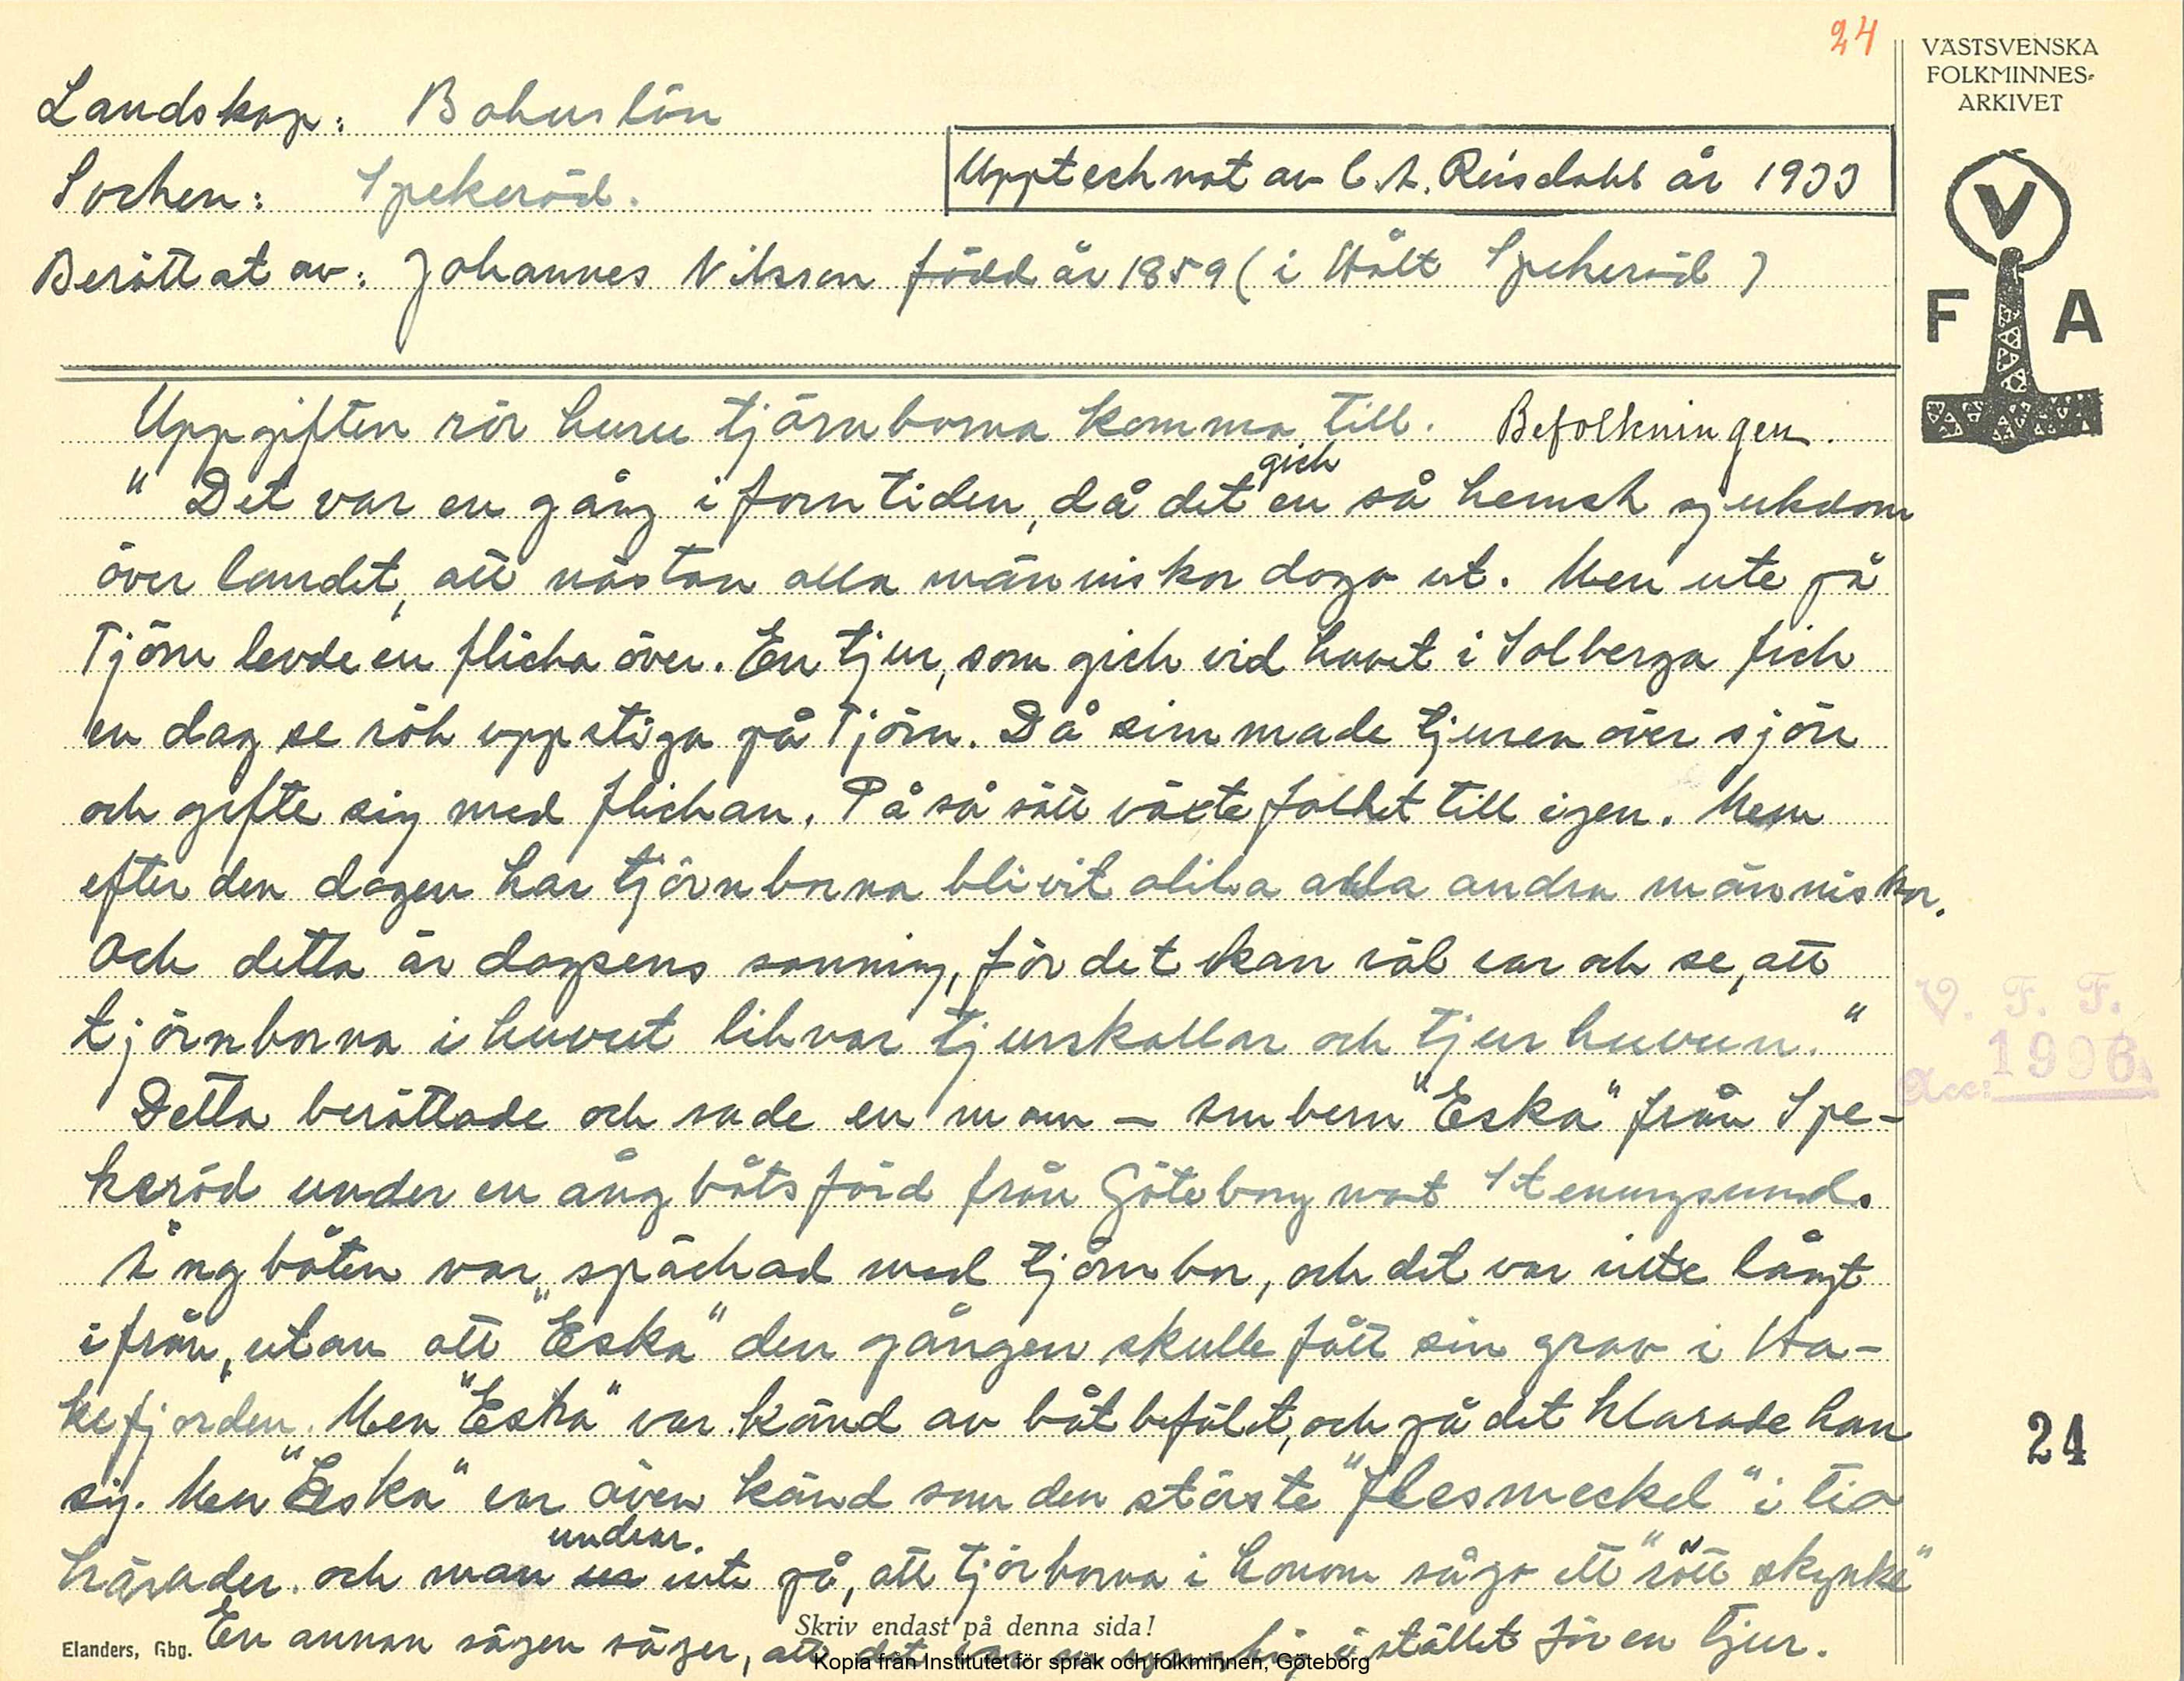 24
VÄSTSVENSKA
FOLKMINNES-
ARKIVET
Landskap: Bohuslän
Socken: Spekeröd.
Upptecknat av C. A. Reisdahl år 1933
Berättat av: Johannes Nilsson född år 1859 (i Hålt Spekeröd)
V
F A
Uppgiften rör huru tjörnborna kommo till. Befolkningen.
" Det var en gång i forntiden, då det gick en så hemsk sjukdom
över landet, att nästan alla människor dogo ut. Men ute på
Tjörn levde en flicka över. En tjur, som gick vid havet i Solberga fick
en dag se rök uppstiga på Tjörn. Då simmade tjuren över sjön
och gifte sig med flickan. På så sätt växte folket till igen. Men
efter den dagen har tjörnborna blivit olika alla andra människor.
Och detta är dagsens sanning, för det kan väl var och se, att
tjörnborna i huvet likvar tjurskallar och tjurhuvun."
Detta berättade och sade en man – "Eska" från Spe-
keröd under en ångbåtsfärd från Göteborg mot Stenungsund.
Ångbåten var späckad med tjörnbor, och det var inte långt
ifrån, utan att "Eska" den gången skulle fått sin grav i Ha-
kefjorden. Men "Eska" var känd av båtbefälet, och på det klarade han
sig. Men "Eska" var även känd som den störste "flesmeckel" i tio
härader. och man undrar. inte på, att tjörborna i honom sågo ett "rött skynke"
Skriv endast på denna sida!
En annan sägen säger, att det i stället för en tjur.
Elanders, Gbg.
Kopia från Institutet för språk och folkminnen, Göteborg
V. F. F.
Acc: 1996
24